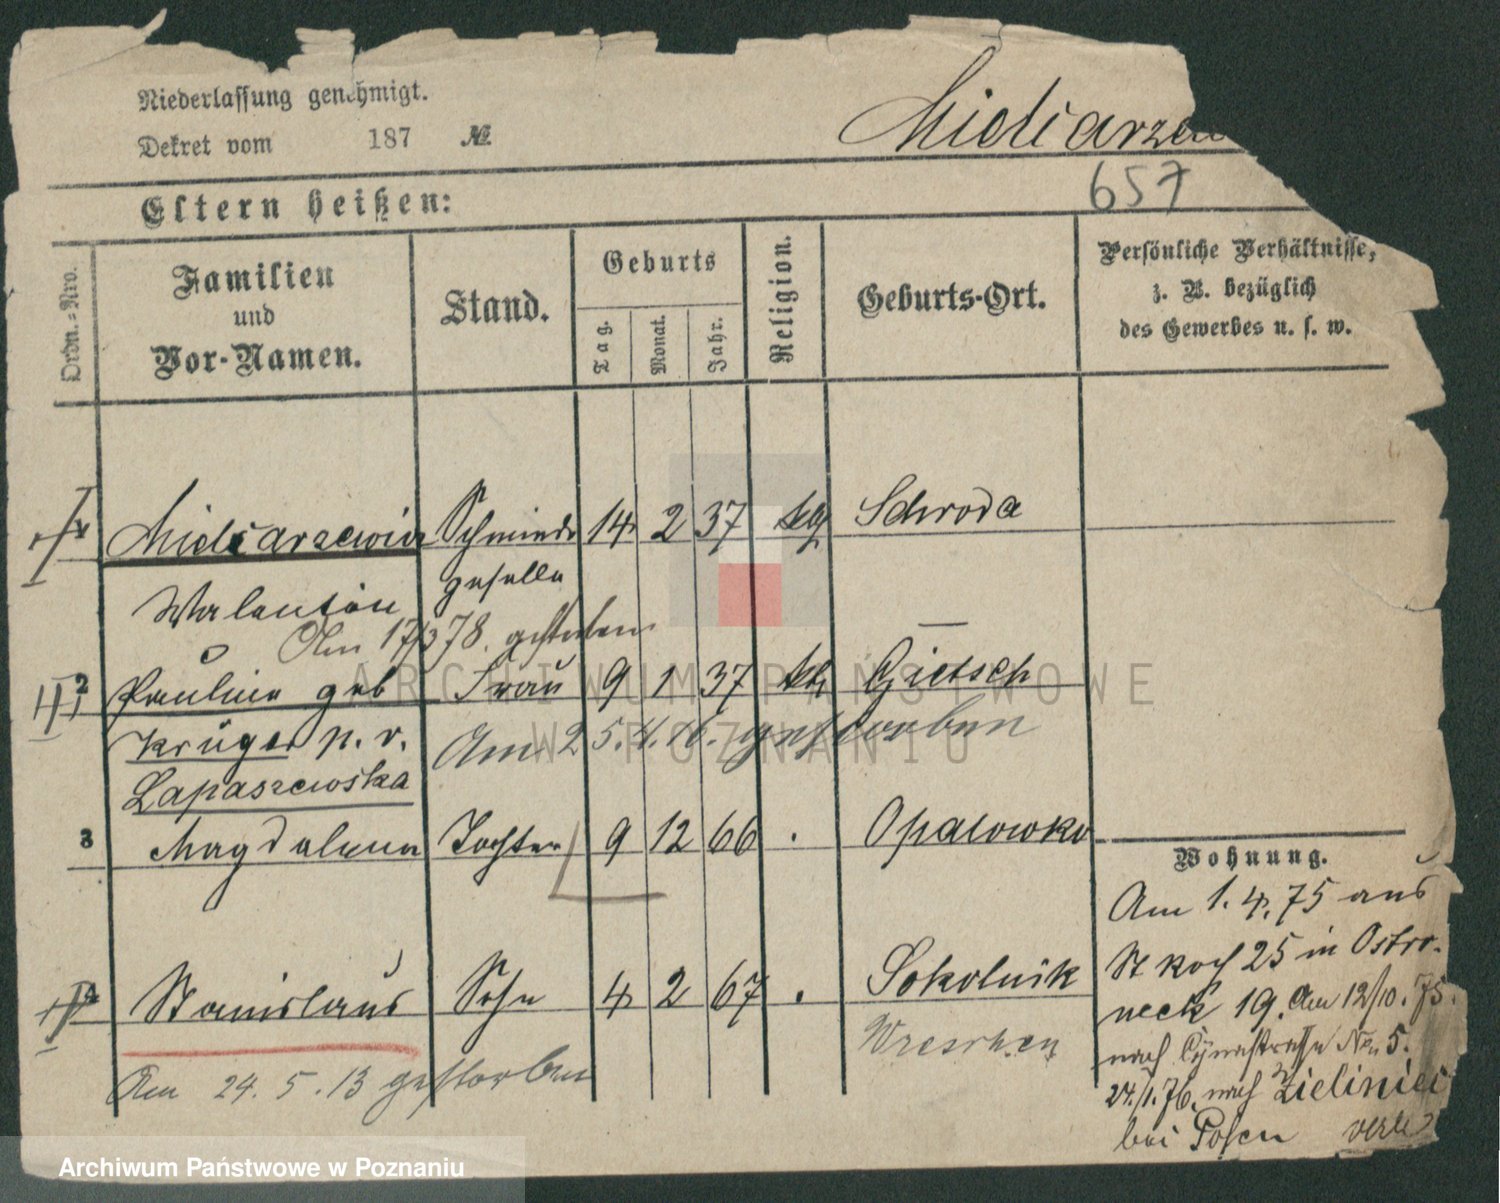 Niederlassung genehmigt.
Dekret vom 187 №
657
Eltern heißen:
Ordn.-Nro.
Familien
und
Vor-Namen.
Stand.
Geburts
Tag.
Monat.
Jahr.
Religion.
Geburts-Ort.
Persönliche Verhältnisse,
z. B. bezüglich
des Gewerbes u. s. w.
Schmiede 14 2 37 Schroda
geselle
Walentin
Am 17/3 78. gestorben
2 Pauline geb Frau 9 1 37 kth Gietsch
Krüger p. v. Am 25.4.16. gestorben
Lapaszewska
3 Magdalena Tochter 9 12 66 . Opalowko
Stanislaus Sohn 4 2 67 . Sokolnik
Wreschen
Am 24.5.13 gestorben
Wohnung.
Am 1.4.75 aus
St Roch 25 in Ostro-
neck 19. Am 12/10.75.
nach No 5.
24/1.76. nach Zieliniec
bei Posen
ARCHIWUM PAŃSTWOWE
W POZNANIU
Archiwum Państwowe w Poznaniu